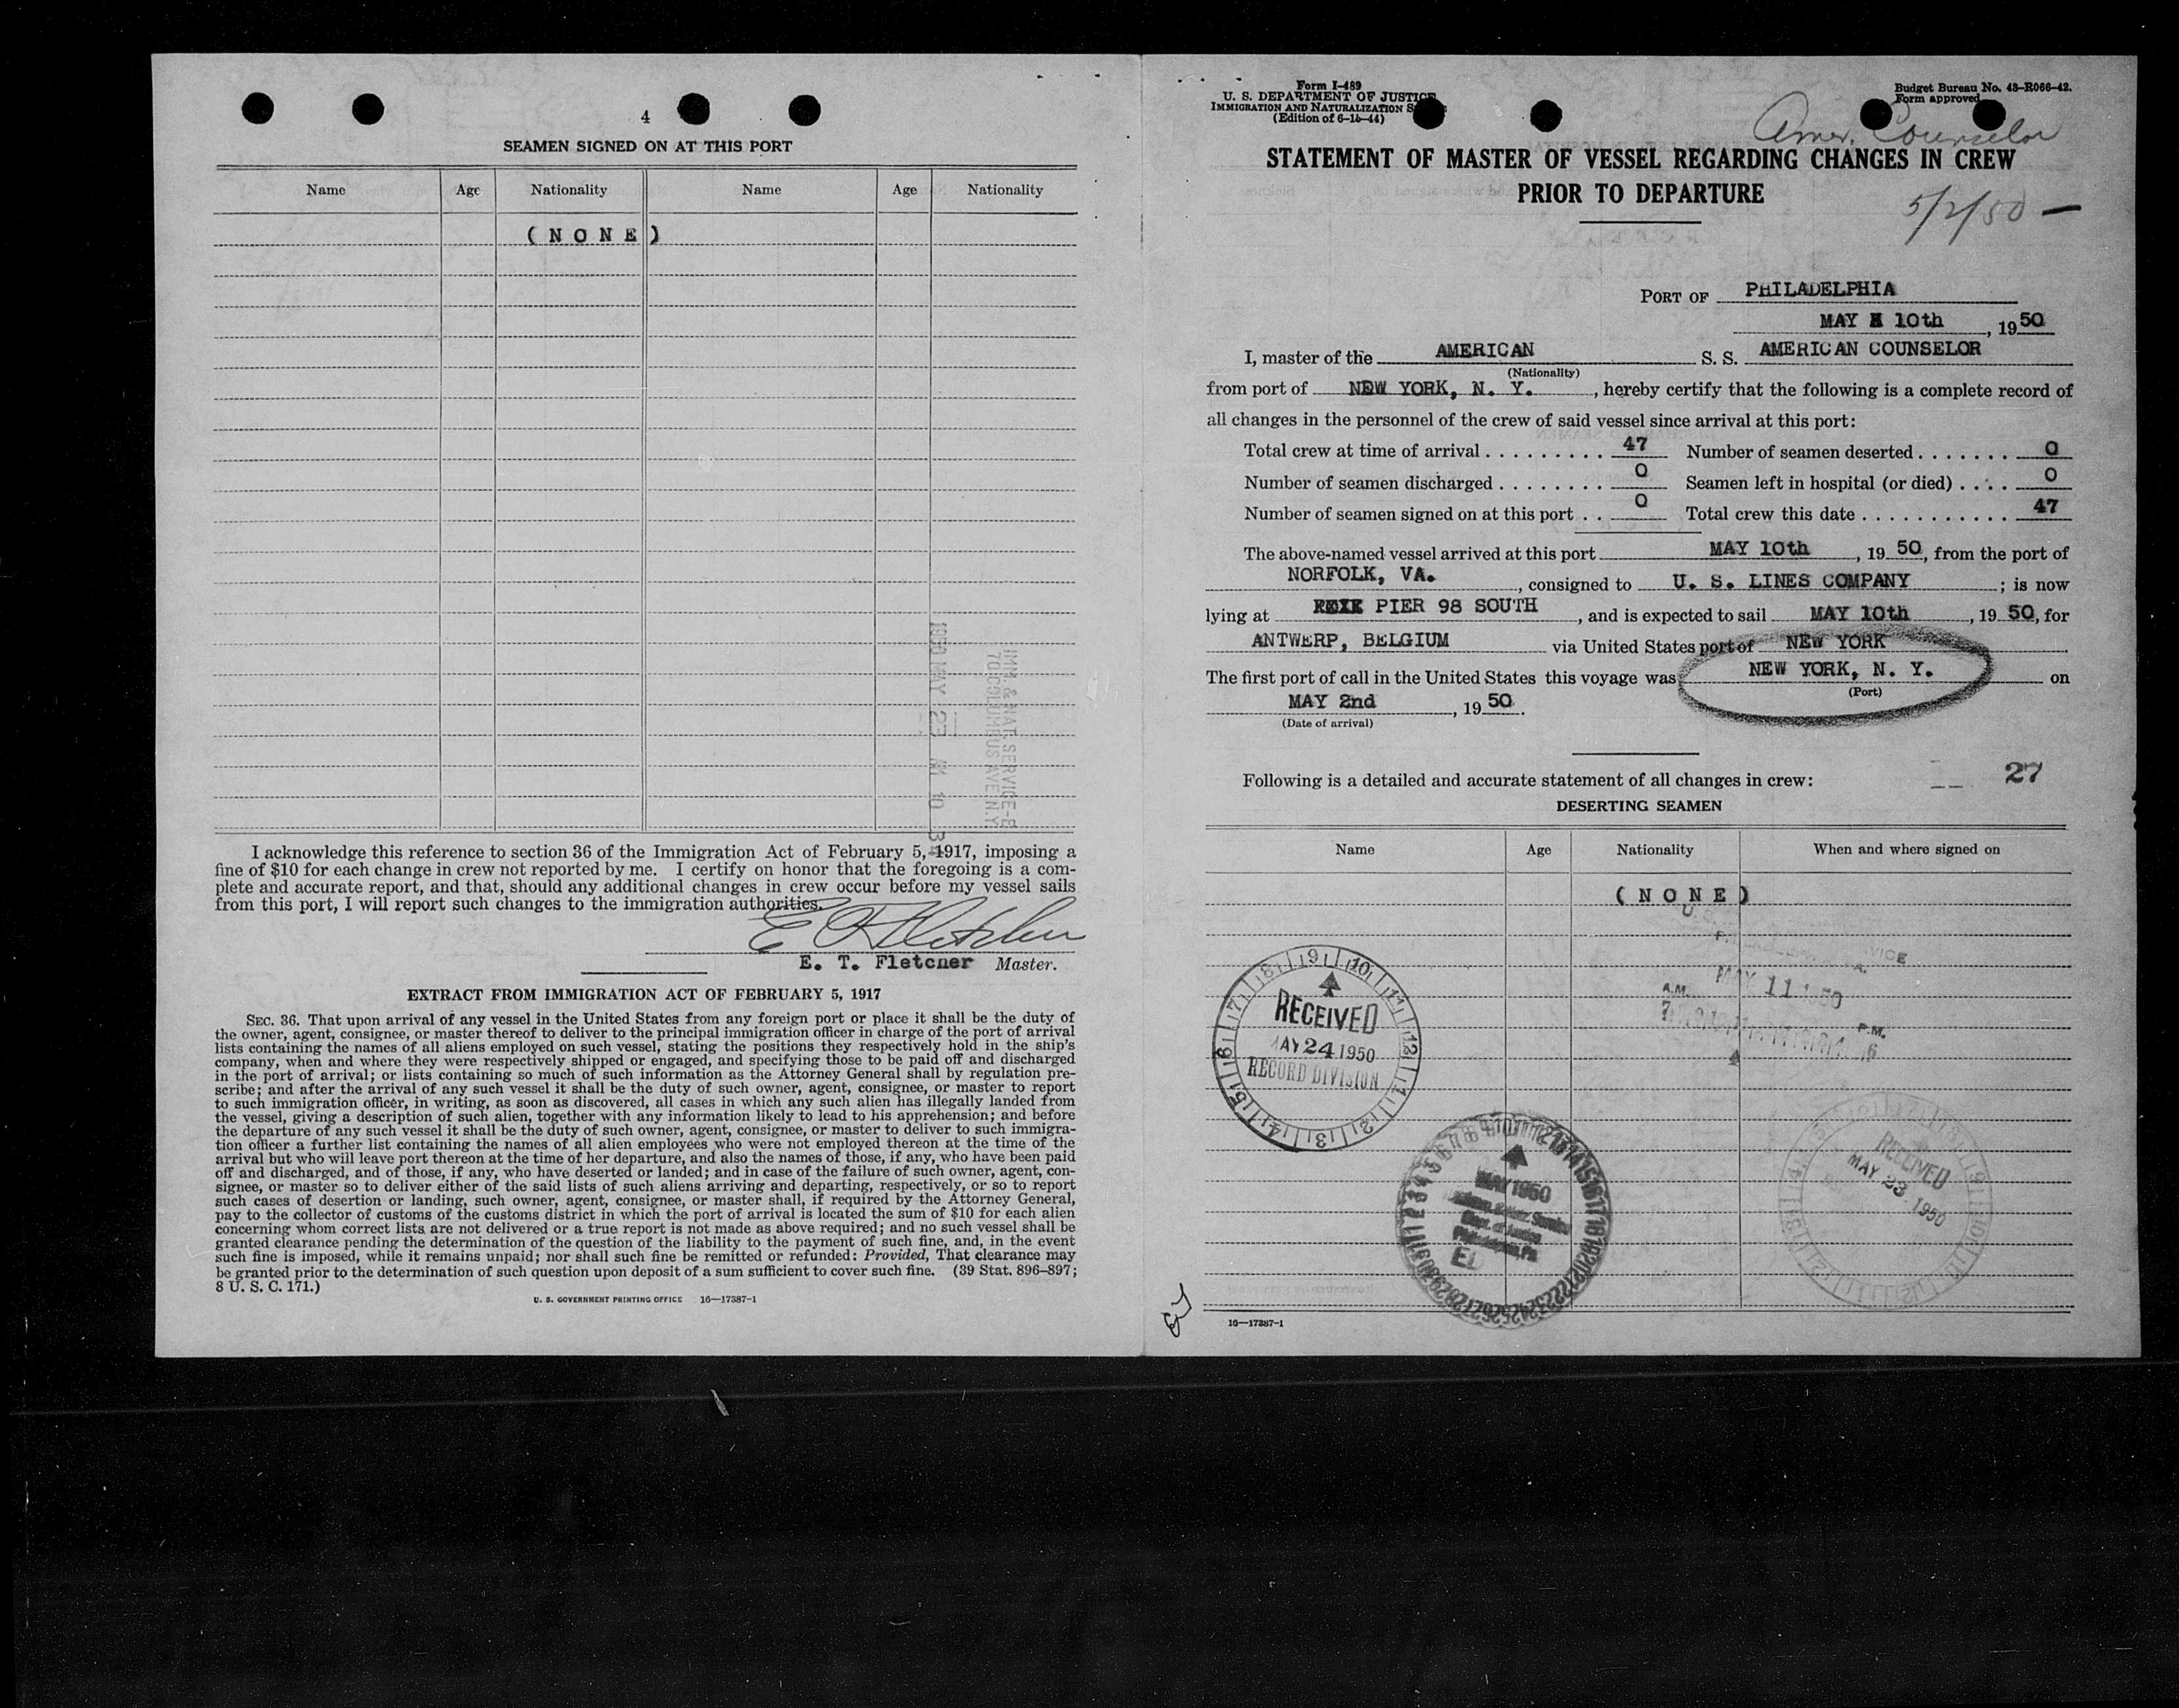 4
SEAMEN SIGNED ON AT THIS PORT
Name Age Nationality Name Age Nationality
( N O N E )
IMM. & NAT. SERVICE-E
70 COLUMBUS AVE N.Y.
1950 MAY 23 AM 10
I acknowledge this reference to section 36 of the Immigration Act of February 5, 1917, imposing a
fine of $10 for each change in crew not reported by me. I certify on honor that the foregoing is a com-
plete and accurate report, and that, should any additional changes in crew occur before my vessel sails
from this port, I will report such changes to the immigration authorities.
E T Fletcher
E. T. Fletcner Master.
EXTRACT FROM IMMIGRATION ACT OF FEBRUARY 5, 1917
SEC. 36. That upon arrival of any vessel in the United States from any foreign port or place it shall be the duty of
the owner, agent, consignee, or master thereof to deliver to the principal immigration officer in charge of the port of arrival
lists containing the names of all aliens employed on such vessel, stating the positions they respectively hold in the ship's
company, when and where they were respectively shipped or engaged, and specifying those to be paid off and discharged
in the port of arrival; or lists containing so much of such information as the Attorney General shall by regulation pre-
scribe; and after the arrival of any such vessel it shall be the duty of such owner, agent, consignee, or master to report
to such immigration officer, in writing, as soon as discovered, all cases in which any such alien has illegally landed from
the vessel, giving a description of such alien, together with any information likely to lead to his apprehension; and before
the departure of any such vessel it shall be the duty of such owner, agent, consignee, or master to deliver to such immigra-
tion officer a further list containing the names of all alien employees who were not employed thereon at the time of the
arrival but who will leave port thereon at the time of her departure, and also the names of those, if any, who have been paid
off and discharged, and of those, if any, who have deserted or landed; and in case of the failure of such owner, agent, con-
signee, or master so to deliver either of the said lists of such aliens arriving and departing, respectively, or so to report
such cases of desertion or landing, such owner, agent, consignee, or master shall, if required by the Attorney General,
pay to the collector of customs of the customs district in which the port of arrival is located the sum of $10 for each alien
concerning whom correct lists are not delivered or a true report is not made as above required; and no such vessel shall be
granted clearance pending the determination of the question of the liability to the payment of such fine, and, in the event
such fine is imposed, while it remains unpaid; nor shall such fine be remitted or refunded: Provided, That clearance may
be granted prior to the determination of such question upon deposit of a sum sufficient to cover such fine. (39 Stat. 896-897;
8 U. S. C. 171.)
U. S. GOVERNMENT PRINTING OFFICE 16—17387-1
Form I-489
U. S. DEPARTMENT OF JUSTICE
IMMIGRATION AND NATURALIZATION
(Edition of 6-15-44)
Budget Bureau No. 43-R066-42.
Form approved
Amer. Counselor
STATEMENT OF MASTER OF VESSEL REGARDING CHANGES IN CREW
PRIOR TO DEPARTURE
5/2/50 —
PORT OF PHILADELPHIA
MAY 10th, 1950
I, master of the AMERICAN S. S. AMERICAN COUNSELOR
(Nationality)
from port of NEW YORK, N. Y., hereby certify that the following is a complete record of
all changes in the personnel of the crew of said vessel since arrival at this port:
Total crew at time of arrival 47 Number of seamen deserted 0
Number of seamen discharged 0 Seamen left in hospital (or died) 0
Number of seamen signed on at this port 0 Total crew this date 47
The above-named vessel arrived at this port MAY 10th, 1950, from the port of
NORFOLK, VA., consigned to U. S. LINES COMPANY; is now
lying at PIER 98 SOUTH, and is expected to sail MAY 10th, 1950, for
ANTWERP, BELGIUM via United States port of NEW YORK
The first port of call in the United States this voyage was NEW YORK, N. Y. on
(Port)
MAY 2nd, 1950.
(Date of arrival)
Following is a detailed and accurate statement of all changes in crew: 27
DESERTING SEAMEN
Name Age Nationality When and where signed on
( N O N E )
MAY 11 1950
A.M. P.M.
RECEIVED
MAY 24 1950
RECORD DIVISION
MAY 1950
Dept. of Justice
Philadelphia, Pa.
EL
RECEIVED
MAY 23 1950
16—17387-1